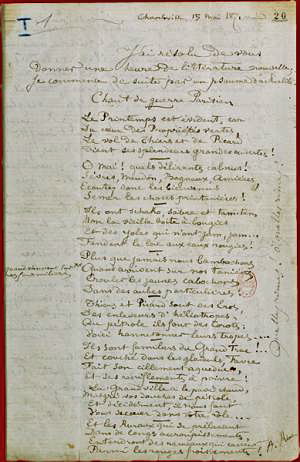 I 1
Charleville, 15 mai 1871
20
J'ai résolu de vous
donner une heure de littérature nouvelle,
je commence de suite par un psaume d'actualité
Chant de guerre Parisien
Le Printemps est évident, car
Du cœur des Propriétés vertes
Le vol de Thiers et de Picard
Tient ses splendeurs grandes ouvertes !
O mai ! quels délirants culnus !
Sèvres, Meudon, Bagneux, Asnières
Ecoutez donc les bienvenus
Semer les choses printanières !
Ils ont schako, sabre et tamtam
Non la vieille boîte à bougies
Et des yoles qui n'ont jam, jam...
Fendent le lac aux eaux rougies !
Plus que jamais nous bambochons
Quand arrivent sur nos tanières
Crouler les jaunes cabochons
Dans des aubes particulières
Thiers et Picard sont des Eros
Des enleveurs d'héliotropes
Au pétrole ils font des Corots :
Voici hannetonner leurs tropes...
Ils sont familiers du Grand Truc !...
Et couché dans les glaïeuls, Favre
Fait son cillement aqueduc
Et ses reniflements à poivre !
La Grand ville a le pavé chaud
Malgré vos douches de pétrole
Et décidément il nous faut
Vous secouer dans votre rôle...
Et les Ruraux qui se prélassent
Dans de longs accroupissements
Entendront des rameaux qui cassent
Parmi les rouges froissements !
Quelles rimes ! ô ! quelles rimes !